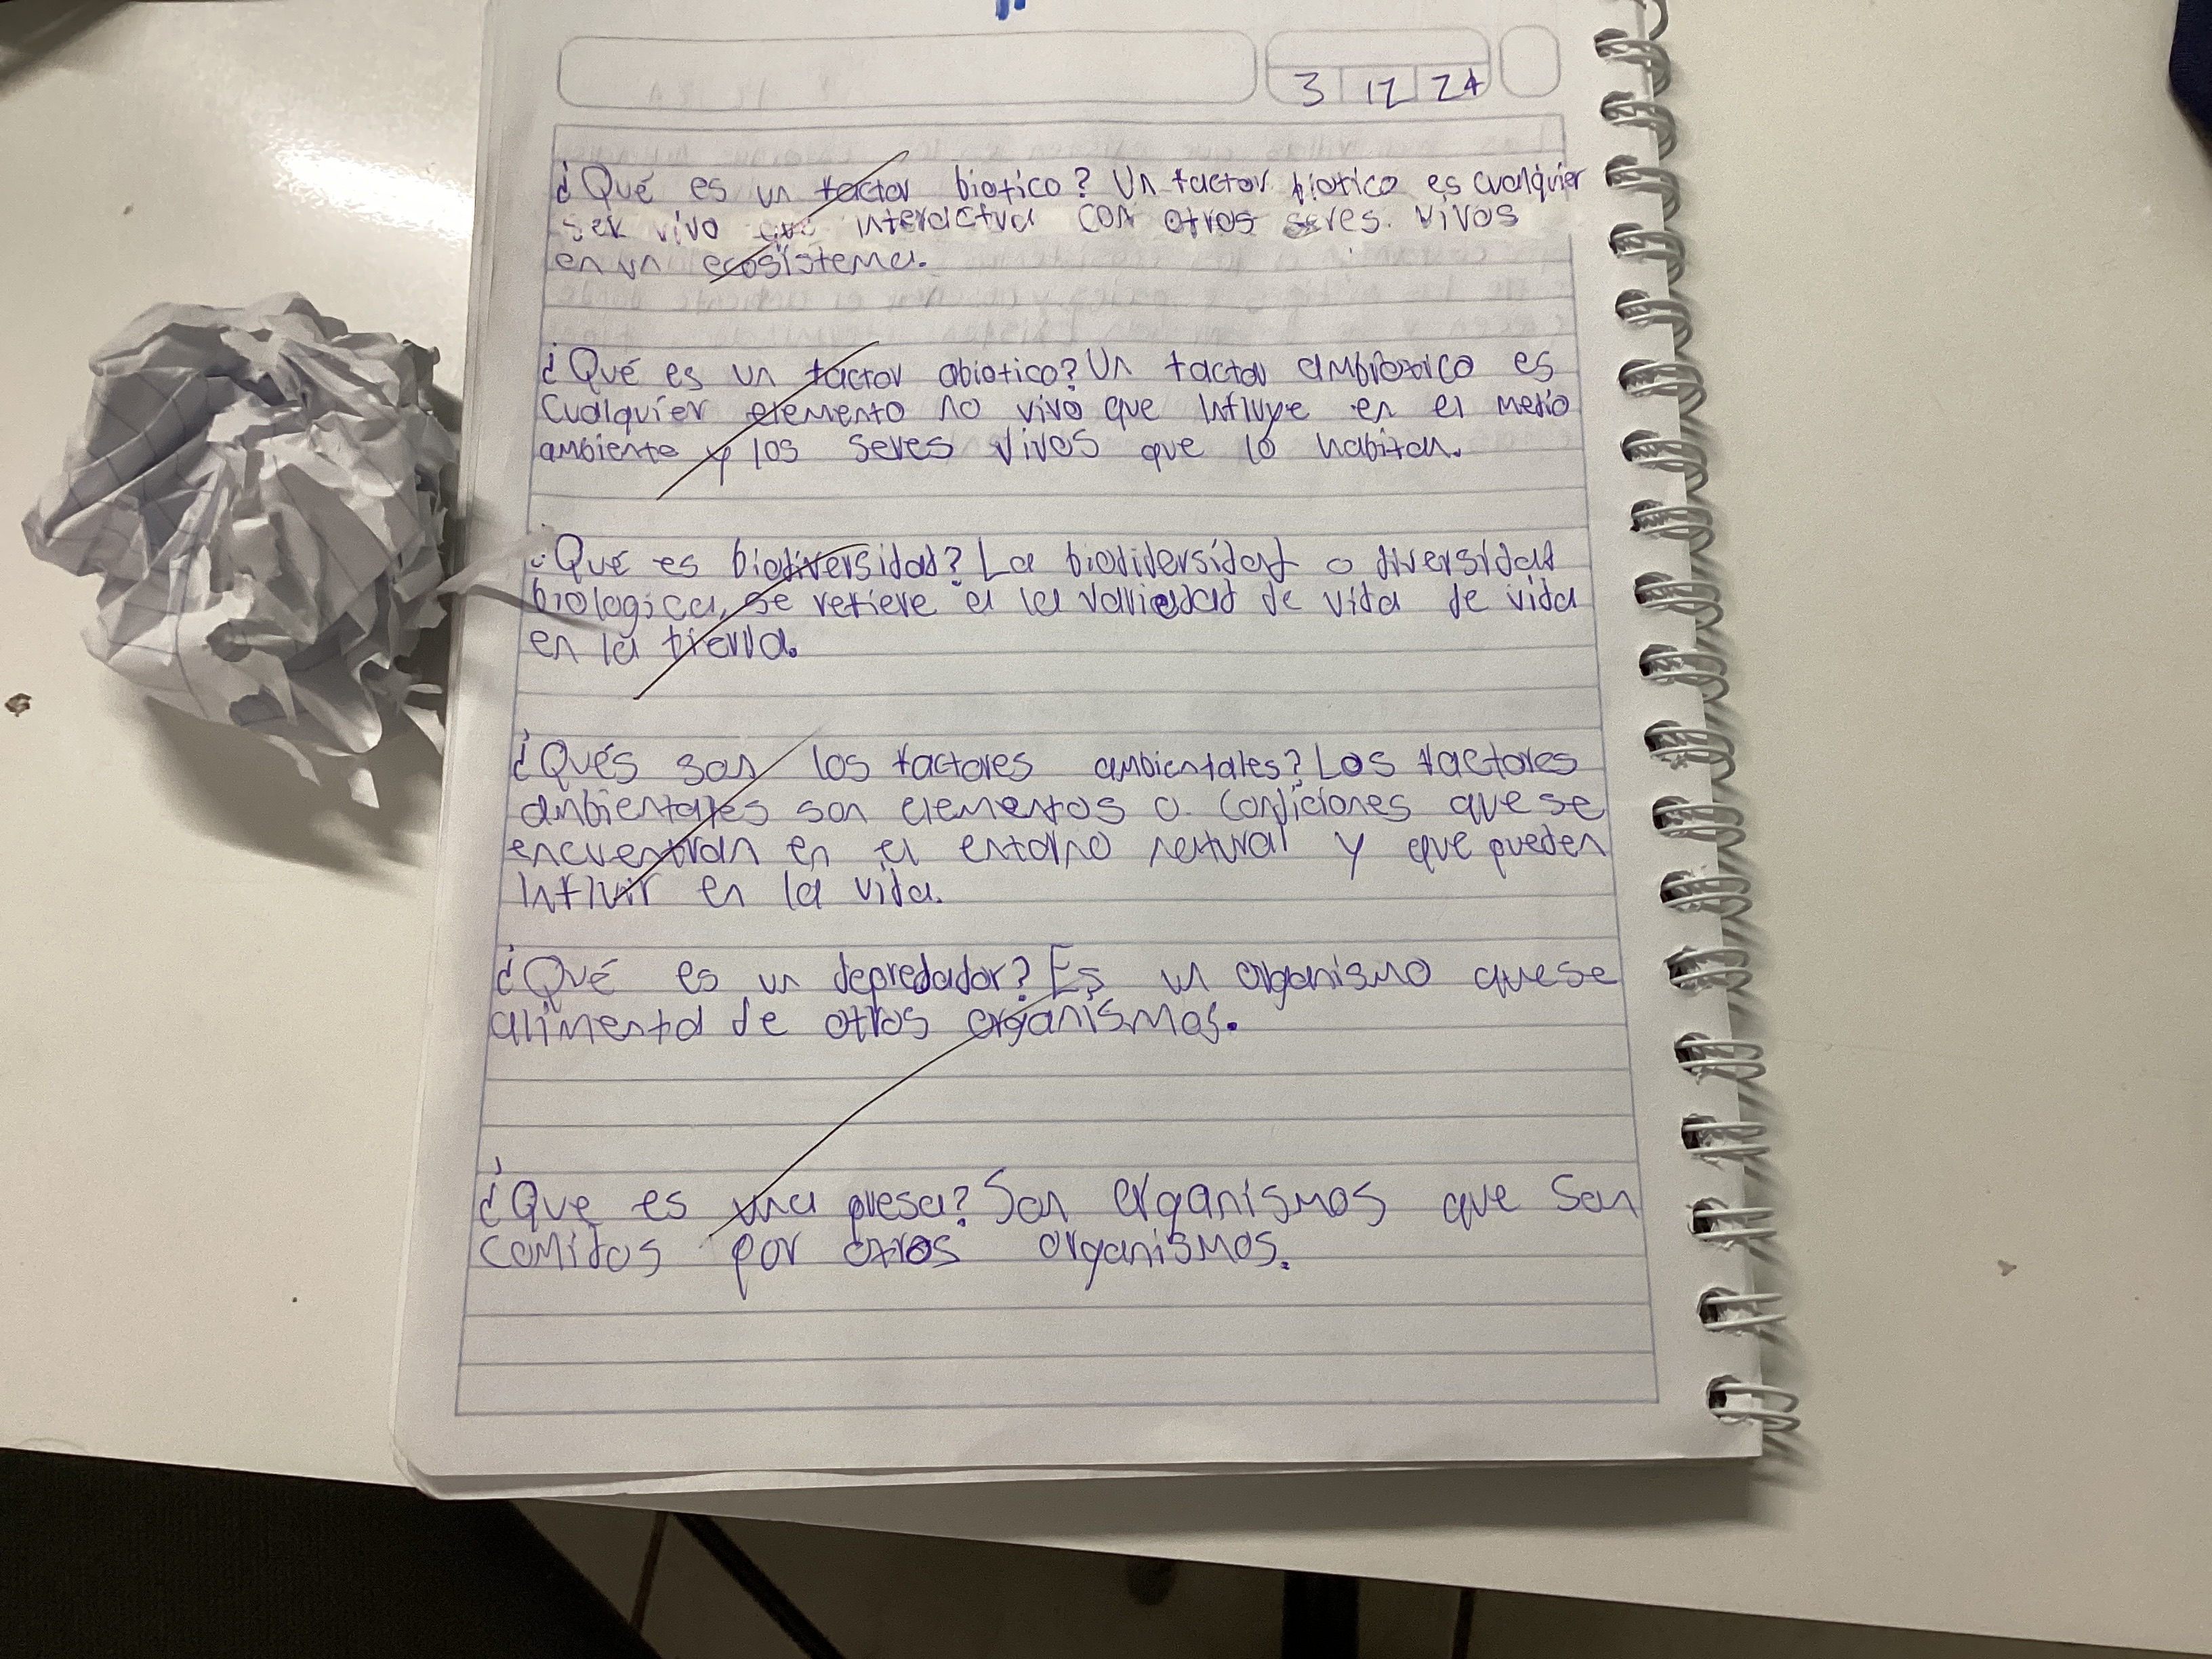 3 12 24
¿Qué es un factor biotico? Un factor biotico es cualquier
ser vivo que interactua con otros seres vivos
en un ecosistema.
¿Qué es un factor abiotico? Un factor es
cualquier elemento no vivo que influye en el medio
ambiente y los seres vivos que lo habitan.
¿Qué es biodiversidad? La biodidersidad o diversidad
biologica, se refiere a la variedad de vida de vida
en la tierra.
¿Qués son los factores ambientales? Los factores
ambientales son elementos o condiciones que se
encuentran en el entorno natural y que pueden
influir en la vida.
¿Qué es un depredador? Es un organismo que se
alimenta de otros organismos.
¿Que es una presa? Son organismos que son
comidos por otros organismos.